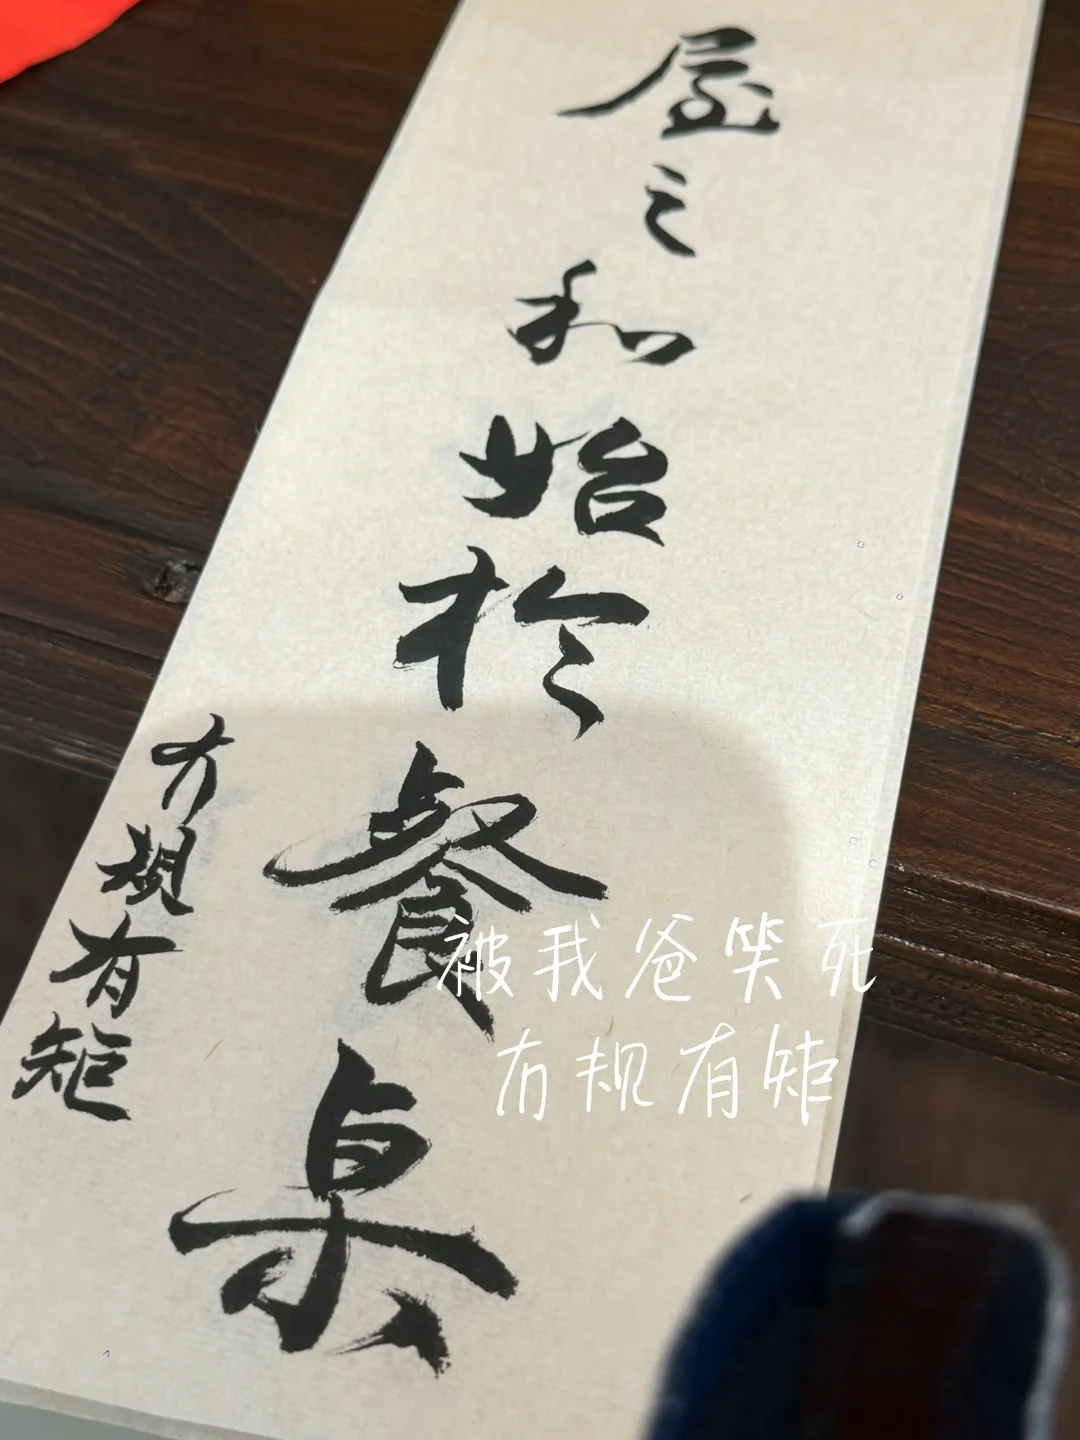 屋之和始於餐桌
冇規有矩
被我爸笑死
冇规有矩